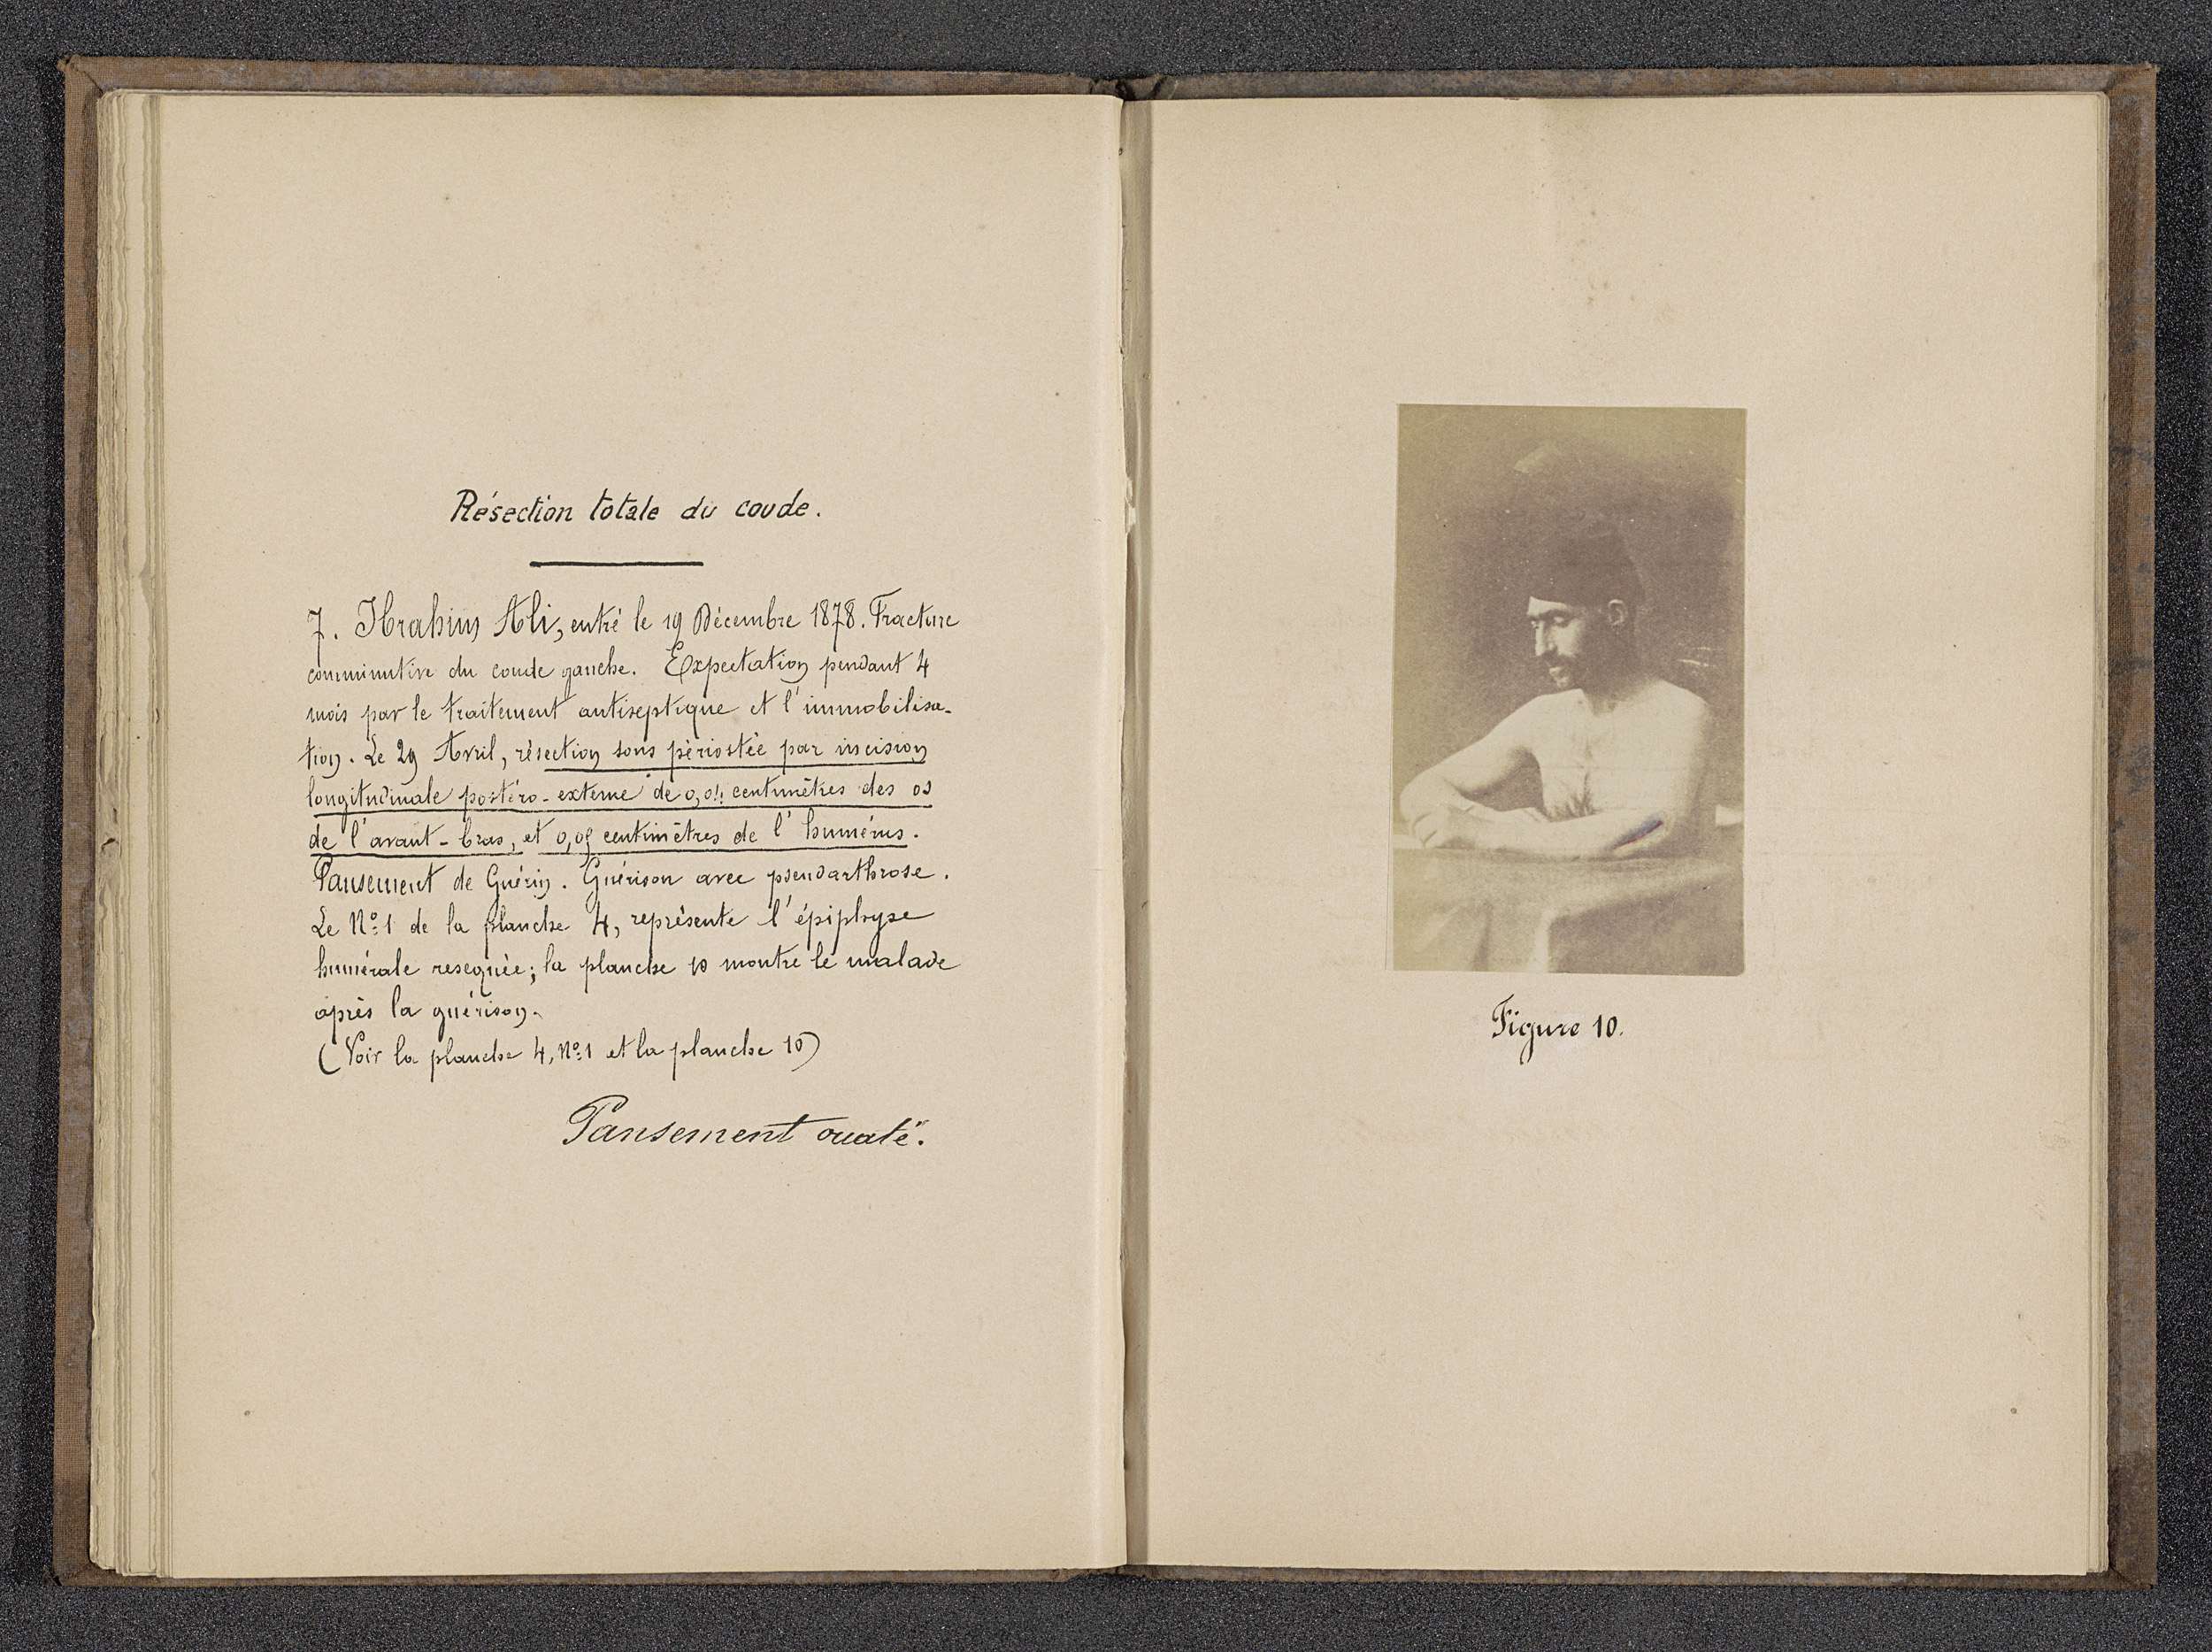 Résection totale du coude.
7. Ibrahim Ali, entré le 19 Décembre 1878. Fracture
comminutive du coude gauche. Expectation pendant 4
mois par le traitement antiseptique et l'immobilisa-
tion. Le 29 Avril, résection sous périostée par incision
longitudinale postéro-externe de centimètres des os
de l'avant-bras, et centimètres de l'humérus.
Pansement de Guérin. Guérison avec pseudarthrose.
Le No. 1 de la planche 4, représente l'épiphyse
humérale resequée; la planche 10 montre le malade
après la guérison.
(Voir la planche 4, No. 1 et la planche 10)
Pansement ouaté.
Figure 10.